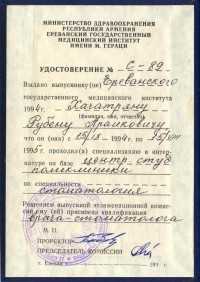 МИНИСТЕРСТВО ЗДРАВООХРАНЕНИЯ
РЕСПУБЛИКИ АРМЕНИЯ
ЕРЕВАНСКИЙ ГОСУДАРСТВЕННЫЙ
МЕДИЦИНСКИЙ ИНСТИТУТ
ИМЕНИ М. ГЕРАЦИ
УДОСТОВЕРЕНИЕ № С-82
Выдано выпускнику(це) Ереванского
государственного медицинского института
1994г. Хачатряну
(фамилия, имя, отчество)
Рубену
что он (она) с 1994г. по
1995г. проходил(а) специализацию в интер-
натуре на базе центр. студ.
поликлиники
по специальности
стоматология
Решением выпускной экзаменационной комис-
сии ему (ей) присвоена квалификация
врача-стоматолога
М. П.
ПРОРЕКТОР
ПРЕДСЕДАТЕЛЬ КОМИССИИ
г. Ереван 199 г.